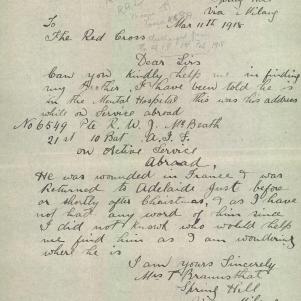 Spring Hill
via Milang
Mar 11th 1918
To
The Red Cross
Dear Sirs
Can you kindly help me in finding
my Brother, I have been told he is
in the Mental Hospital this was his address
while on Service abroad
No 6549 Pte R. W. J. McBeath
21st 10 Bat. A.I.F.
on Active Service
Abroad,
He was wounded in France & was
Returned to Adelaide just before
or shortly after Christmas, & as I have
not had any word of him since
I did not know who would help
me find him as I am wondering
where he is
I am Yours Sincerely
Mrs T
Spring Hill